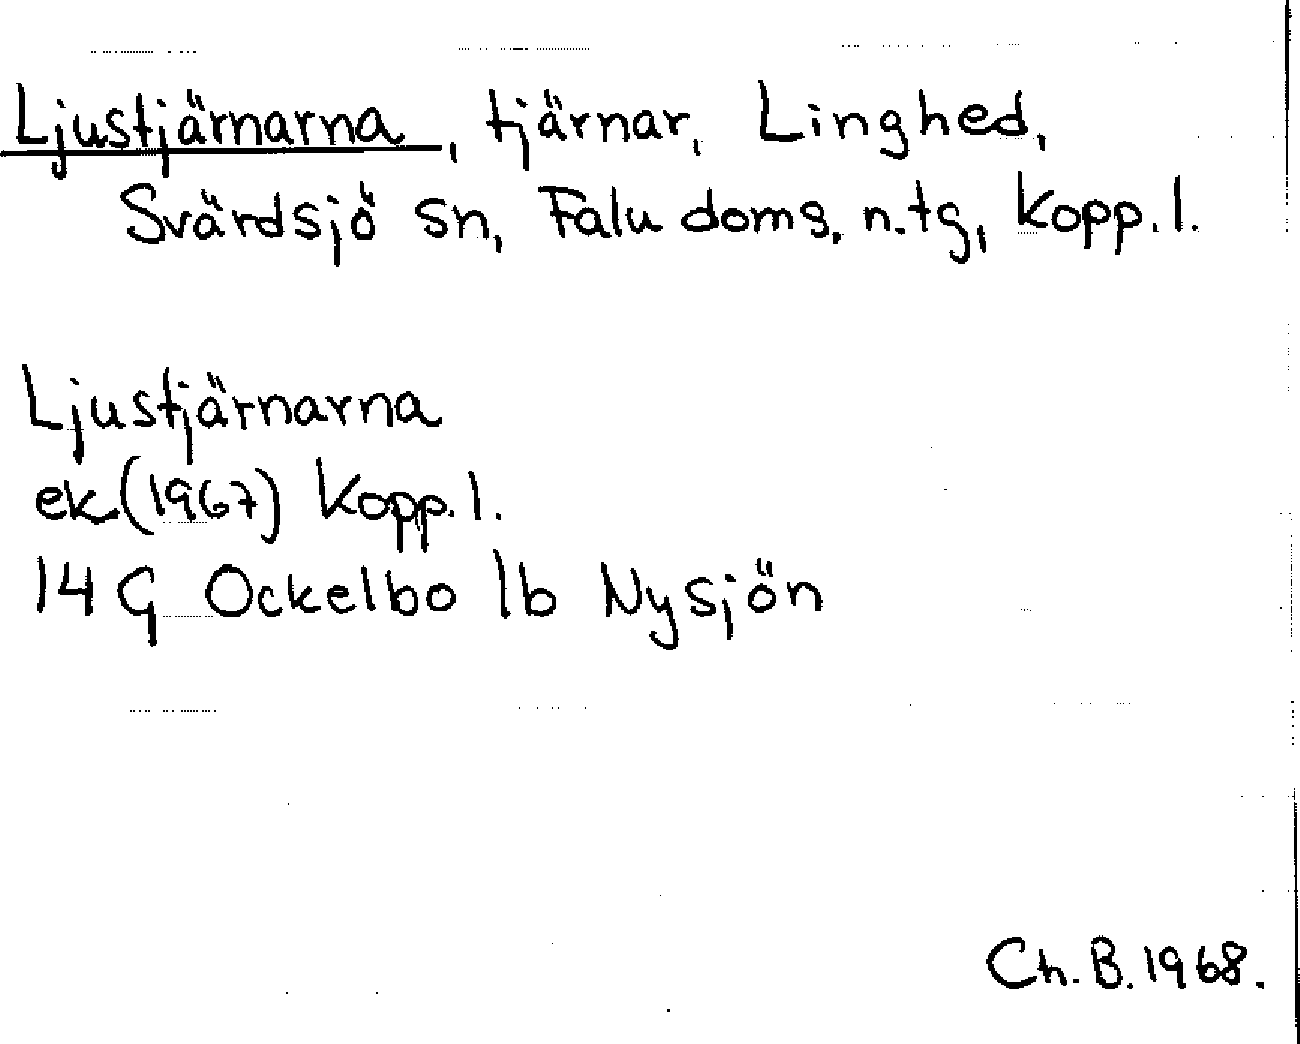 Ljustjärnarna, tjärnar, Linghed,
Svärdsjö sn, Falu doms. n.tg, Kopp. l.
Ljustjärnarna
ek (1967) Kopp. l.
14 G Ockelbo 1b Nysjön
Ch. B. 1968.